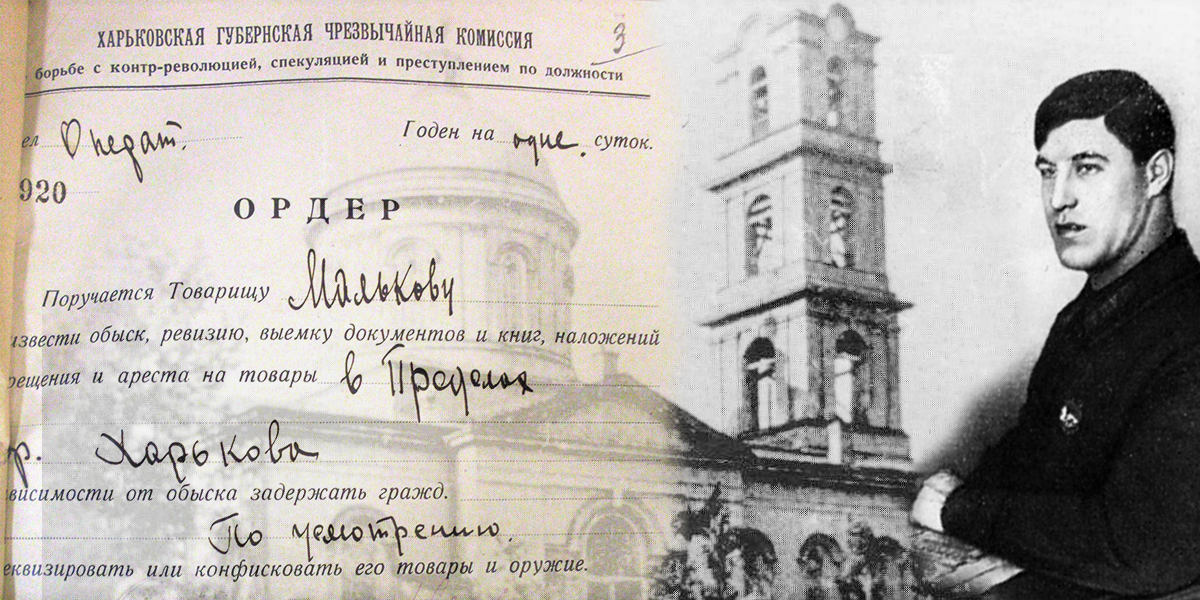 ХАРЬКОВСКАЯ ГУБЕРНСКАЯ ЧРЕЗВЫЧАЙНАЯ КОМИССИЯ
3
борьбе с контр-революцией, спекуляцией и преступлением по должности
ел Операт. Годен на одне. суток.
920
ОРДЕР
Поручается Товарищу Малькову
извести обыск, ревизию, выемку документов и книг, наложений
рещения и ареста на товары в Пределах
гр. Харькова
висимости от обыска задержать гражд.
По усмотрению.
еквизировать или конфисковать его товары и оружие.